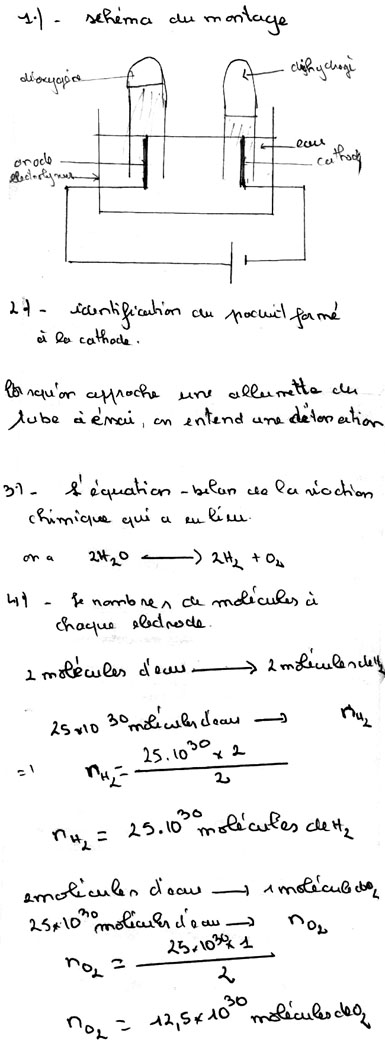 1.) - schéma du montage
dioxygène
dihydrogè
eau
anode
cathode
electrolyseur
2.) - identification du produit formé
à la cathode.
lorsqu'on approche une allumette du
tube à éssai, on entend une détonation
3°) - L'équation - bilan de la réaction
chimique qui a eu lieu.
on a 2H₂O ⟶ 2H₂ + O₂
4°) - le nombres de molécules à
chaque électrode.
2 molécules d'eau ⟶ 2 molécules de H₂
25×10 30 molécules d'eau ⟶ nH₂
=> nH₂ = 25.10³⁰ × 2 / 2
nH₂ = 25.10³⁰ molécules de H₂
2 molécules d'eau ⟶ 1 molécule O₂
25×10³⁰ molécules d'eau ⟶ nO₂
nO₂ = 25×10³⁰×1 / 2
nO₂ = 12,5×10³⁰ molécules de O₂